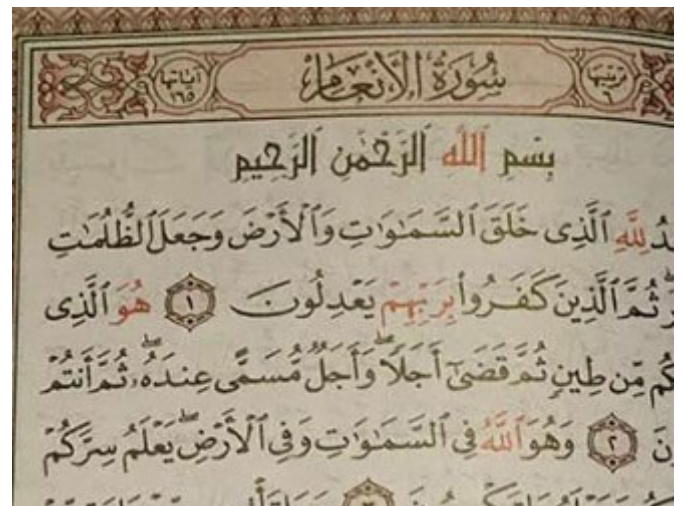 ترتيبها ٦ سُورَةُ الْأَنْعَامِ آياتها ١٦٥
بِسْمِ ٱللَّهِ ٱلرَّحْمَٰنِ ٱلرَّحِيمِ
ـدُ لِلَّهِ ٱلَّذِى خَلَقَ ٱلسَّمَٰوَٰتِ وَٱلْأَرْضَ وَجَعَلَ ٱلظُّلُمَٰتِ
رَۖ ثُمَّ ٱلَّذِينَ كَفَرُوا۟ بِرَبِّهِمْ يَعْدِلُونَ ١ هُوَ ٱلَّذِى
ـكُم مِّن طِينٍ ثُمَّ قَضَىٰٓ أَجَلًاۖ وَأَجَلٌ مُّسَمًّى عِندَهُۥۖ ثُمَّ أَنتُمْ
ـنَ ٢ وَهُوَ ٱللَّهُ فِى ٱلسَّمَٰوَٰتِ وَفِى ٱلْأَرْضِۖ يَعْلَمُ سِرَّكُمْ